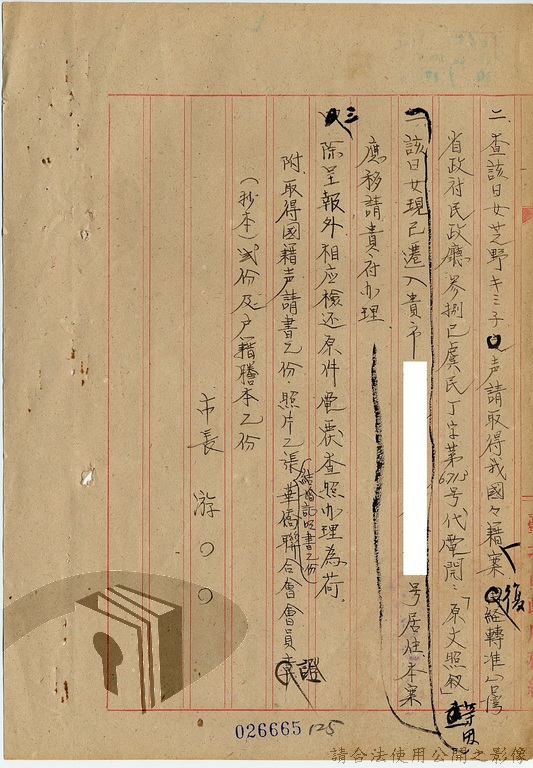 二 查該日女芝野キミ子声請取得我國々籍案復經轉准台灣
省政府民政廳參捌巳虞民丁字第6713号代電開:「原文照叙」等因
一 該日女現已遷入貴市
号居住本案
應移請貴府办理
三 除呈報外相应檢还原件電復查照办理為荷
附 取得國籍声請書乙份.照片乙張 華僑聯合會會員證
結婚証明書乙份
(抄本)貳份及户籍謄本乙份
市長 游○○
026665 125
請合法使用公開之影像